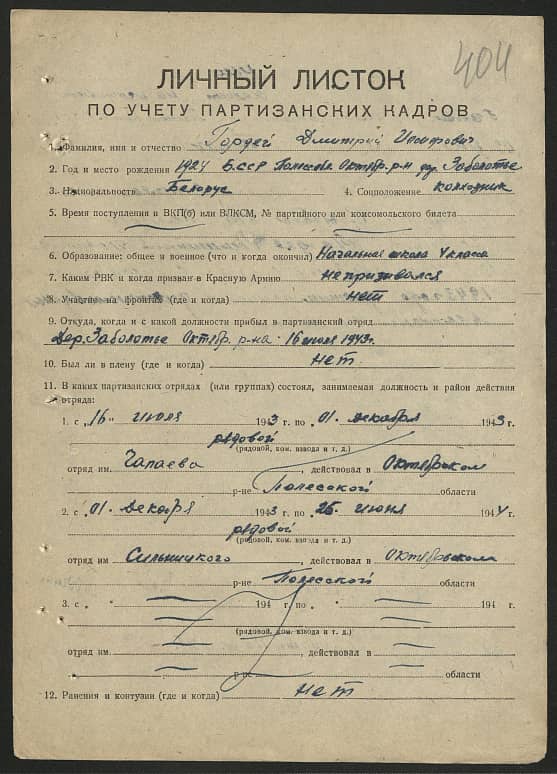 404
ЛИЧНЫЙ ЛИСТОК
ПО УЧЕТУ ПАРТИЗАНСКИХ КАДРОВ
1. Фамилия, имя и отчество Гордей Дмитрий
2. Год и место рождения 1924 БССР Полесск. Октябр. р-н дер. Заболотье
3. Национальность Белорус 4. Соцположение колхозник
5. Время поступления в ВКП(б) или ВЛКСМ, № партийного или комсомольского билета
6. Образование: общее и военное (что и когда окончил) Начальная школа 4 класса
7. Каким РВК и когда призван в Красную Армию не призывался
8. Участие на фронтах (где и когда) нет
9. Откуда, когда и с какой должности прибыл в партизанский отряд
Дер. Заболотье Октябр. р-на 16 июля 1943г.
10. Был ли в плену (где и когда) нет.
11. В каких партизанских отрядах (или группах) состоял, занимаемая должность и район действия
отряда:
1. с „16" июля 1943 г. по „01. декабря 1943 г.
рядовой
(рядовой, ком. взвода и т. д.)
отряд им. Чапаева, действовал в Октябрьском
р-не Полесской области
2. с „01. декабря 1943 г. по „25. июня 1944 г.
рядовой
(рядовой, ком. взвода и т. д.)
отряд им. Сильницкого, действовал в Октябрьском
р-не Полесской области
3. с „ " 194 г. по " 194 г.
(рядовой, ком. взвода и т. д.)
отряд им. , действовал в
р-не области
12. Ранения и контузии (где и когда) нет